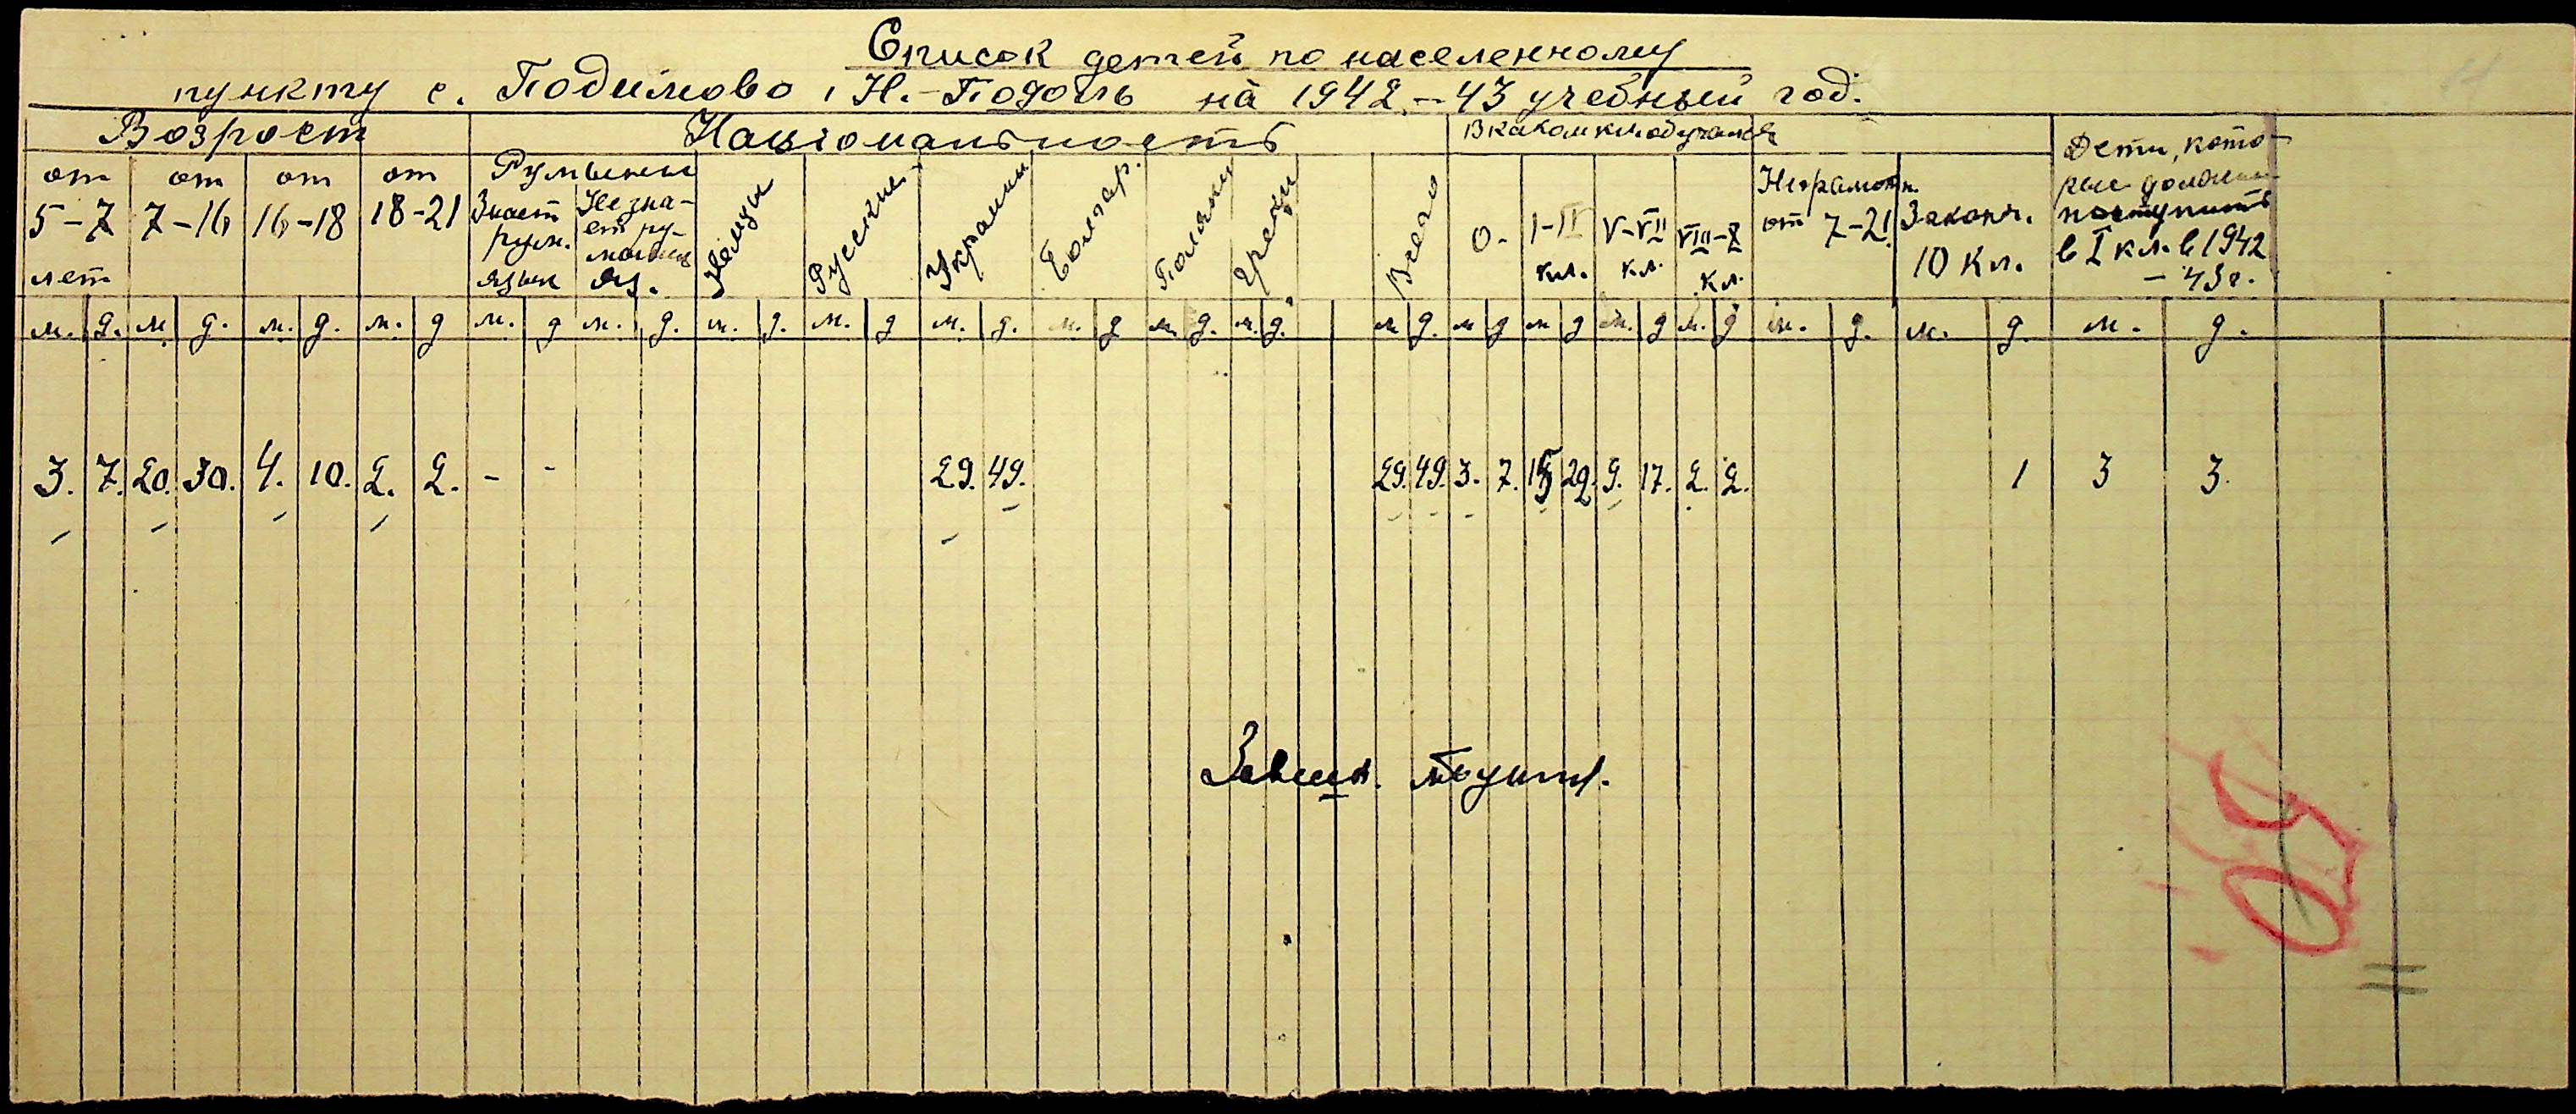 Список детей по населенному
пункту с. Подимово, Н.-Подоль на 1942-43 учебный год.
Возрост Национальность В каком кл. обучался Дети, кото-
рые должны
поступить
в I кл. в 1942
– 43 г.
от 5-7 лет от 7-16 от 16-18 от 18-21
Румыны
Знает рум. язык Не зна-
ет ру-
мынск. яз.
Немцы Русские Украинц Болгар. Поляки Греки Всего
0- I-IV кл. V-VII кл. VIII-X кл.
Неграмотн. от 7-21 Законч. 10 кл.
м. д. м д. м. д. м. д м. д м. д. м. д. м. д м. д. м. д м. д. м. д. м д. м д м д м. д м. д м. д. м. д. м. д.
3. 7. 20. 30. 4. 10. 2. 2. - - 29. 49. 29. 49. 3. 7. 15 22. 9. 17. 2. 2. 1 3 3.
Завшк.